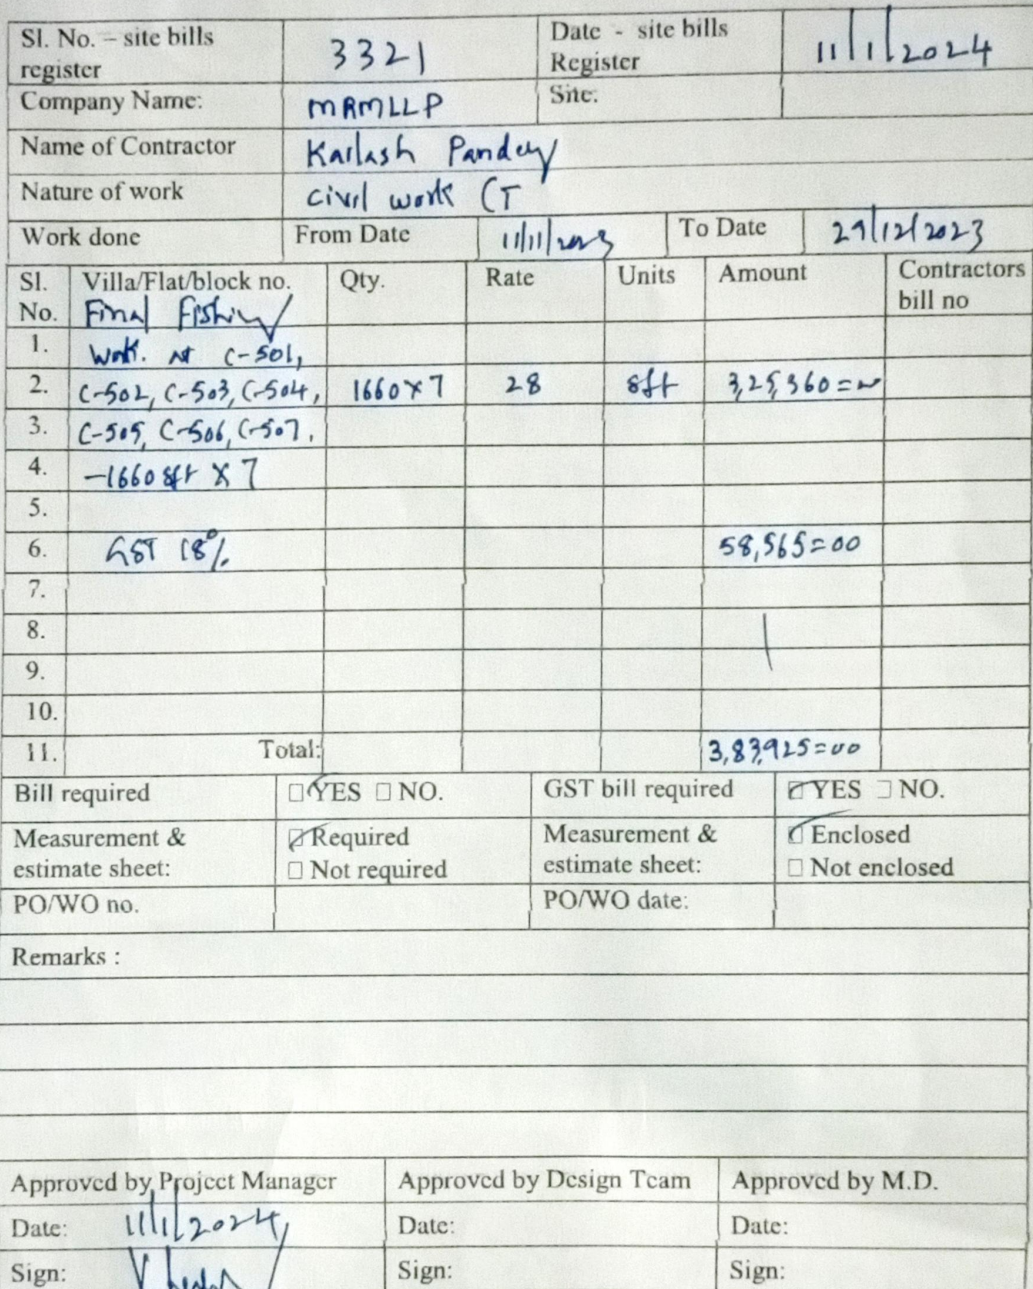 Sl. No. – site bills register 3321 Date - site bills Register 11/1/2024
Company Name: MRMLLP Site:
Name of Contractor Kailash Pandey
Nature of work Civil work CT
Work done From Date 11/11/2023 To Date 29/12/2023
Sl. No. Villa/Flat/block no. Qty. Rate Units Amount Contractors bill no
Final Fishing
1. Work. at C-501,
2. C-502, C-503, C-504, 1660×7 28 sft 3,25,360=00
3. C-505, C-506, C-507.
4. -1660 sft × 7
5.
6. GST 18% 58,565=00
7.
8.
9.
10.
11. Total: 3,83,925=00
Bill required YES NO. GST bill required YES NO.
Measurement & estimate sheet: Required Measurement & estimate sheet: Enclosed
Not required Not enclosed
PO/WO no. PO/WO date:
Remarks :
Approved by Project Manager Approved by Design Team Approved by M.D.
Date: 11/1/2024 Date: Date:
Sign: Sign: Sign: